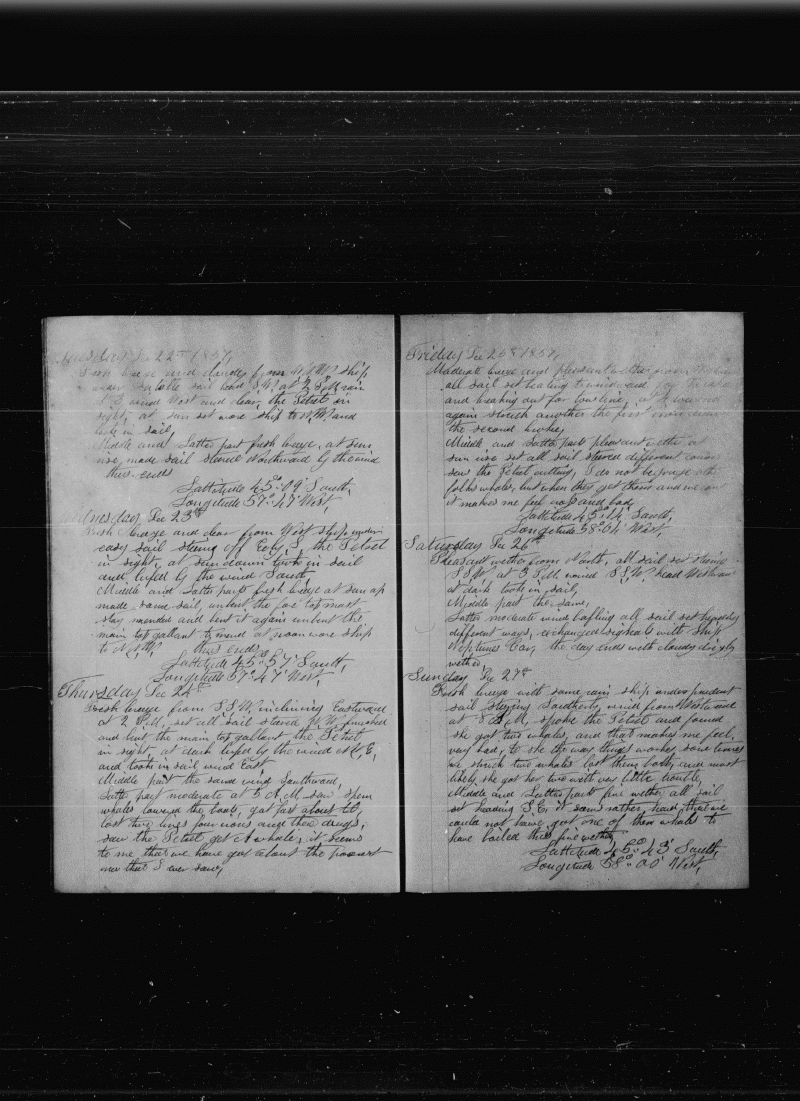 Tuesday Dec 22nd 1857,
Fresh breeze and cloudy from N.N.W. ship
under sail head S.W. at 2 P.M. rain
at 3 wind West and clear, the Petrel in
sight, at sun set wore ship to N.W. and
took in sail,
Middle and Latter part fresh breeze, at sun
rise, made sail steered Northward by the wind
thus ends
Lattitude 45° 09' South,
Longitude 57° 47' West,
Wensday Dec 23rd
Fresh breeze and clear from West ship under
easy sail steering off E by S, the Petrel
in sight, at sun down took in sail
and luffed by the wind South
Middle and Latter parts fresh breeze at sun up
made some sail, unbent the fore top mast
stay mended and bent it again unbent the
main top gallant to mend at noon wore ship
to N.N.W. thus ends
Lattitude 45° 57' South,
Longitude 57° 47' West,
Thursday Dec 24th
Fresh breeze from S.S.W. inclining Eastward
at 2 P.M. set all sail steered N.W. finished
and bent the main top gallant the Petrel
in sight, at dark luffed by the wind N.E.
and took in sail wind East
Middle part the same wind Southward,
Latter part moderate at 5 A.M. saw sperm
whales lowered the boats, got fast to
lost two lines four irons and three drugs,
saw the Petrel get A whale, it seems
to me that we have got about the poorest
crew that I ever saw,
Friday Dec 25th 1857,
Moderate breeze and pleasant wether from
all sail set heading to windward
and breaking out for towline, at we lowered
again struck another the first iron
the second broke,
Middle and Latter parts pleasant wether at
sun rise set all sail steered different
saw the Petrel cutting, I do not begrudge other
folks whales, but when they get them and we
it makes me feel up and bad,
Lattitude 45° 14' South,
Longitude 58° 04' West,
Saturday Dec 26th
Pleasant wether from North, all sail set steering
S.S.W. at 3 P.M. wind S.S.W. head Westward
at dark took in sail,
Middle part the same,
Latter moderate wind baffling all sail set heading
different ways, exchanged signals with ship
Neptunes Car, the day ends with cloudy drizly
wether,
Sunday Dec 27th
Fresh breeze with some rain ship under prudent
sail steering Southerly, wind from Westward
at 8 A.M. spoke the Petrel and found
she got two whales, and that makes me feel,
very bad, to see the way things works some times
we struck two whales lost them both, and most
likely she got her two with very little trouble,
Middle and Latter parts fine wether all sail
set heading S.E. it seems rather hard that we
could not have got one of them whales to
have boiled this fine wether
Lattitude 45° 43' South,
Longitude 58° 00' West,